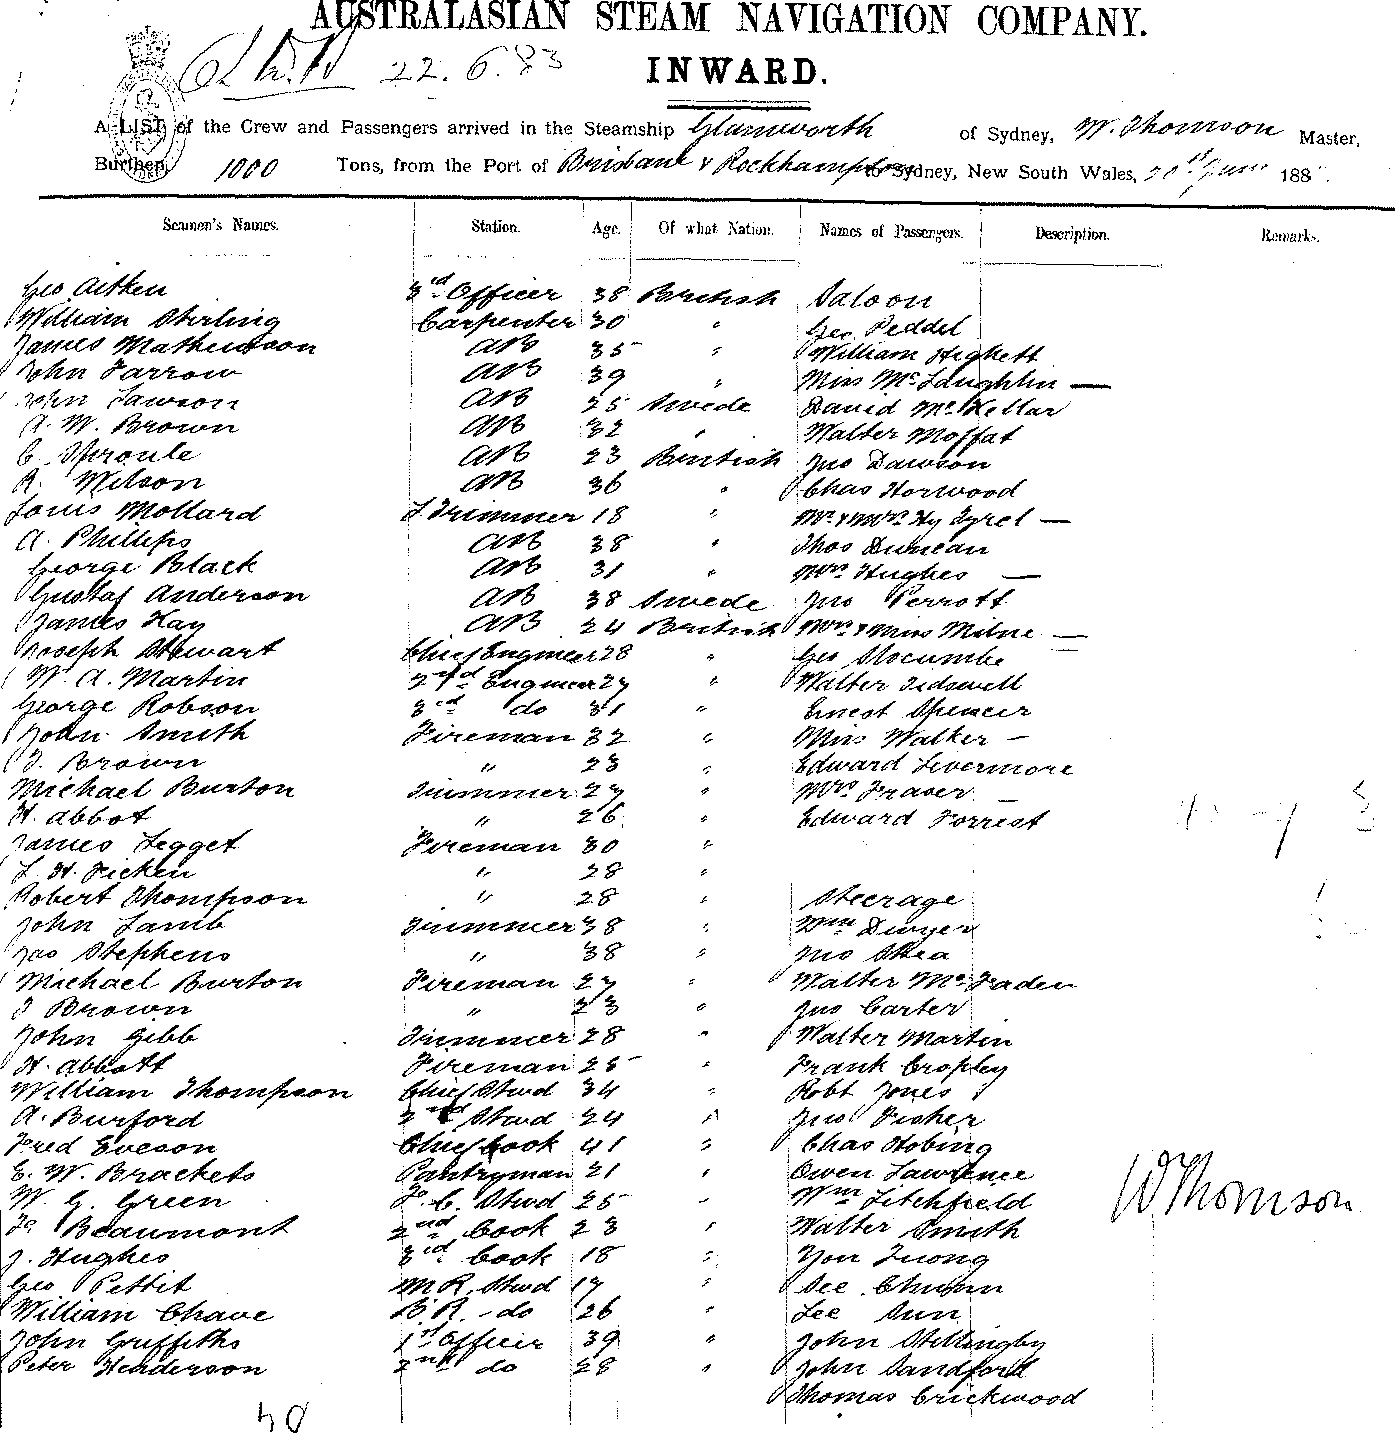 AUSTRALASIAN STEAM NAVIGATION COMPANY.
22.6.83
INWARD.
A LIST of the Crew and Passengers arrived in the Steamship Glamworth of Sydney, W. Thomson Master,
Burthen 1000 Tons, from the Port of Brisbane & Rockhampton to Sydney, New South Wales, June 188
Seamen's Names. Station. Age. Of what Nation. Names of Passengers. Description. Remarks.
Geo Aitken 3rd Officer 38 British Saloon
William Stirling Carpenter 30 " Geo Peddel
James Mathewson AB 35 " William Highett
John Farrow AB 39 " Miss McLaughlin —
John Lawson AB 25 Swede David McKellar
A. W. Brown AB 32 " Walter Moffat
C. Sproule AB 23 British Jno Dawson
R. Wilson AB 36 " Chas Horwood
Louis Mollard L Trimmer 18 " Mr & Mrs Hy Tyrel —
A. Phillips AB 38 " Thos Duncan
George Black AB 31 " Mrs Hughes —
Gustaf Anderson AB 38 Swede Jno Perrott
James Hay AB 24 British Mrs & Miss Milne —
Joseph Stewart Chief Engineer 28 " Geo Slocumbe
W. A. Martin 2nd Engineer 27 " Walter Tidswell
George Robson 3rd do 31 " Ernest Spencer
John Smith Fireman 32 " Miss Walker —
J. Brown " 23 " Edward Livermore
Michael Burton Trimmer 27 " Mrs Fraser —
H. Abbot " 26 " Edward Forrest
James Legget Fireman 30 "
L. H. Ficken " 28 "
Robert Thompson " 28 " Steerage
John Lamb Trimmer 38 " Wm Dwyer
Jas Stephens " 38 " Jno Shea
Michael Burton Fireman 27 " Walter McFaden
J Brown " 23 " Jno Carter
John Gibb Trimmer 28 " Walter Martin
H. Abbott Fireman 25 " Frank Cropley
William Thompson Chief Stwd 34 " Robt Jones
A. Burford 2nd Stwd 24 " Jno Fisher
Fred Eveson Chief Cook 41 " Chas Hobing
E. W. Brackets Pantryman 21 " Owen Lawrence
W. G. Green F. C. Stwd 25 " Wm Litchfield
Fr. Beaumont 2nd Cook 23 " Walter Smith
J. Hughes 3rd Cook 18 " Yon Tuong
Geo Pettit M R. Stwd 17 " See Chunn
William Chave B. R. do 26 " Lee Sun
John Griffiths 1st Officer 39 " John Stillingby
Peter Henderson 2nd do 28 " John Sandford
Thomas Crickwood
WThomson
40